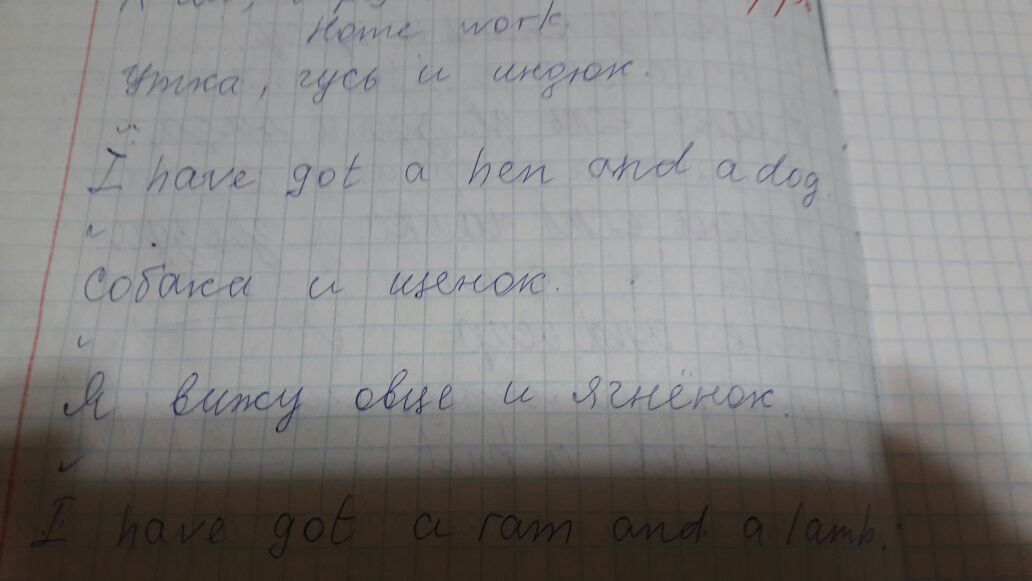 Home work.
Утка, гусь и индюк.
I have got a hen and a dog.
Собака и щенок.
Я вижу овце и ягнёнок.
I have got a ram and a lamb.